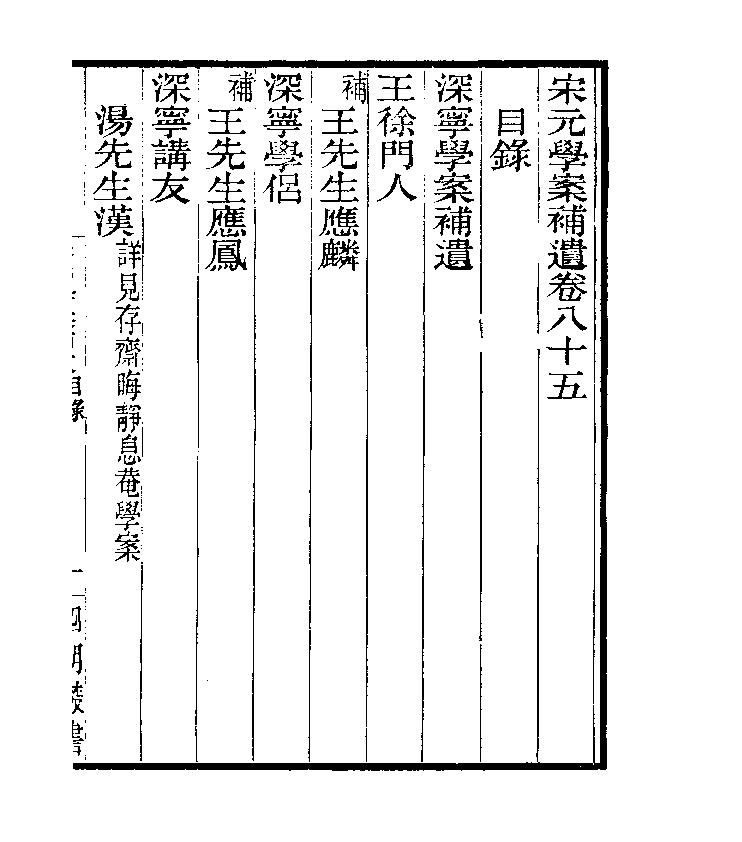 宋元學案補遺卷八十五
目錄
深寧學案補遺
王徐門人
補王先生應麟
深寧學侶
補王先生應鳳
深寧講友
湯先生漢詳見存齋晦靜息菴學案
目錄
一四明叢書